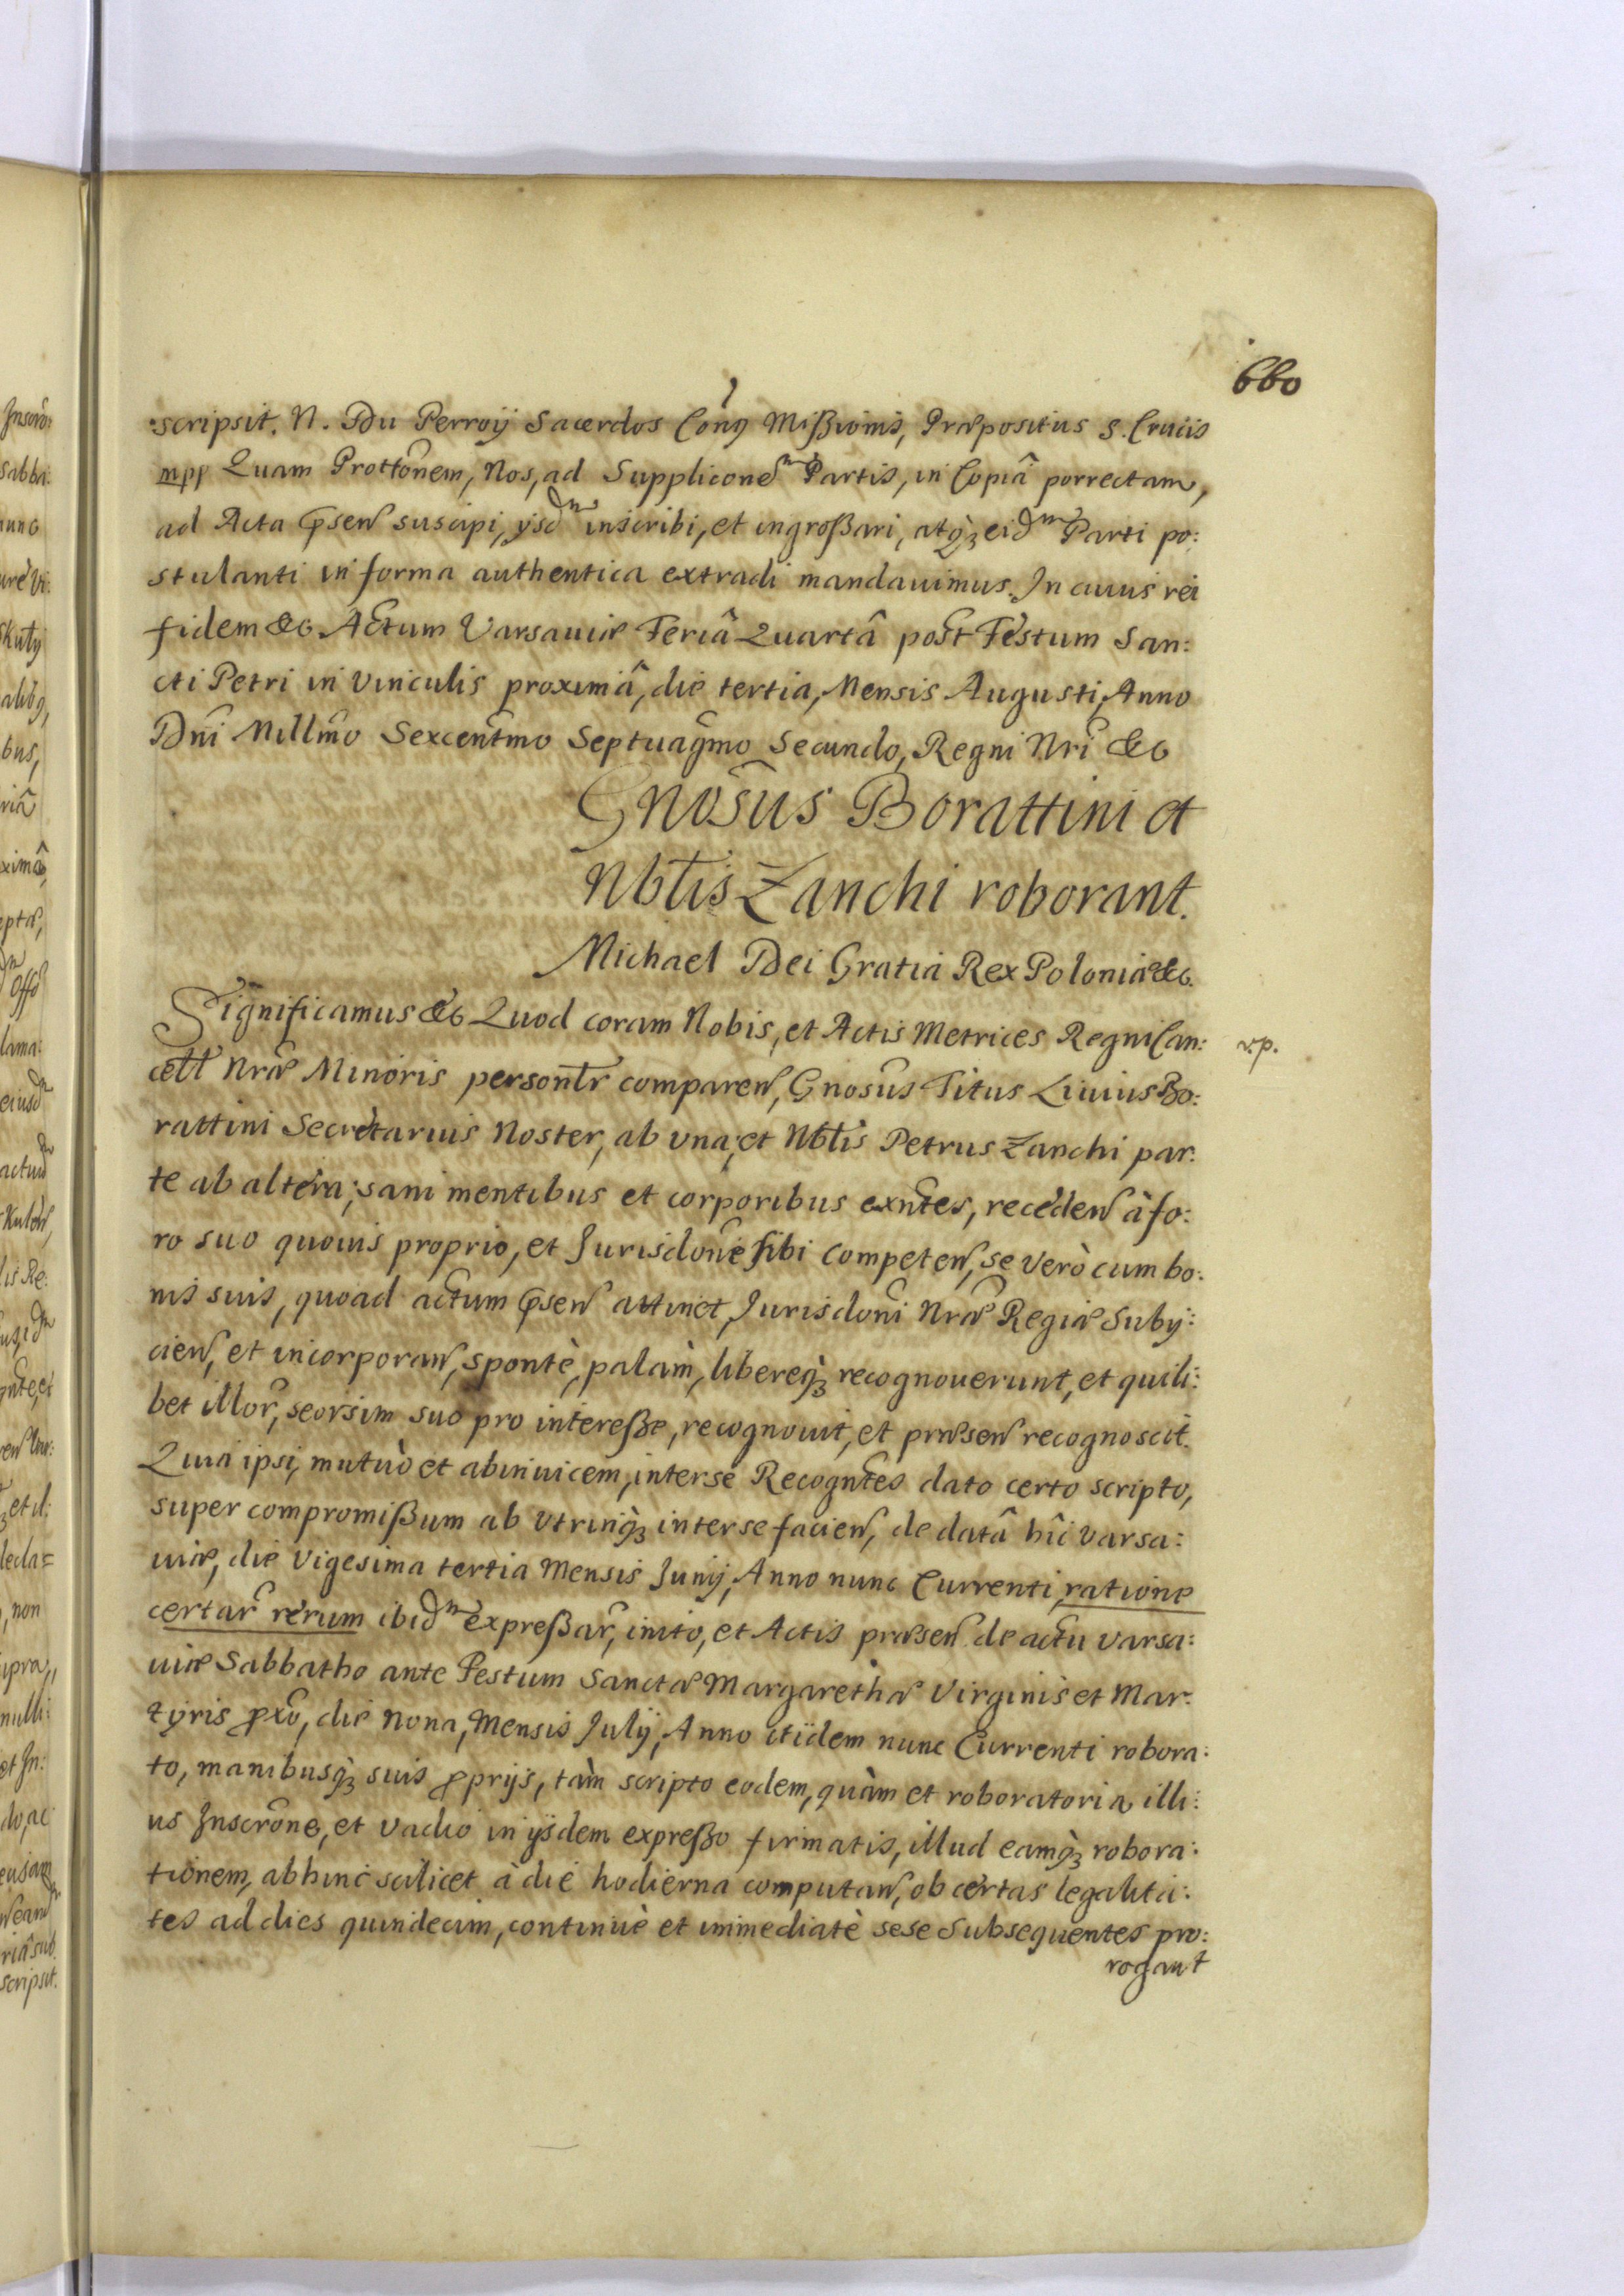 660
scripsit. N. Du Perroij Sacerdos Cong Mißionis, Præpositus S. Crucis
mpp Quam Prottonem, Nos, ad Supplicone Partis, in Copiâ porrectam,
ad Acta psen suscipi, ijsdm inscribi, et ingroßari, atq3 eidm Parti po:
stulanti in forma authentica extradi mandauimus. In cuius rei
fidem &c Actum Varsauiæ Feriâ Quartâ post Festum San:
cti Petri in vinculis proximâ, die tertia, Mensis Augusti, Anno
Dni Millmo Sexcentmo Septuagmo Secundo, Regni Nri &c
Gnosus Borattini et
Nbtis Zanchi roborant.
Michael Dei Gratia Rex Poloniæ &c.
Significamus &c Quod coram Nobis, et Actis Metrices Regni Can:
v.p.
cell Nræ Minoris personlr comparen, Gnosus Titus Liuius Bo:
rattini Secretarius Noster, ab vna, et Nbtis Petrus Zanchi par:
te ab altera; sani mentibus et corporibus exntes, receden à fo:
ro suo quouis proprio, et Jurisdone sibi competen, se verò cum bo:
nis suis, quoad actum psen attinet, Jurisdoni Nræ Regiæ Subij:
cien, et incorporan, spontè, palàm, libereq3 recognouerunt, et quili:
bet illor, seorsim suo pro intereße, recognouit, et præsen recognoscit.
Quia ipsi, mutuò et abinuicem, inter se Recogntes dato certo scripto,
super compromißum ab vtrinq3 inter se facien, de datâ hîc Varsa:
uiæ, die Vigesima tertia Mensis Junij, Anno nunc Currenti, ratione
certar rerum ibidm expreßar, inito, et Actis præsen de actu Varsa:
uiæ Sabbatho ante Festum Sanctæ Margarethæ Virginis et Mar:
tyris pxo, die Nona, Mensis Julij, Anno itidem nunc Currenti robora:
to, manibusq3 suis proprijs, tàm scripto eodem, quàm et roboratoria illi:
us Inscrone, et vadio in ijsdem expreßo firmatis, illud eamq3 robora:
tionem, abhinc scilicet à die hodierna computan, ob certas legalita:
tes ad dies quindecim, continuè et immediatè sese Subsequentes pro:
rogant